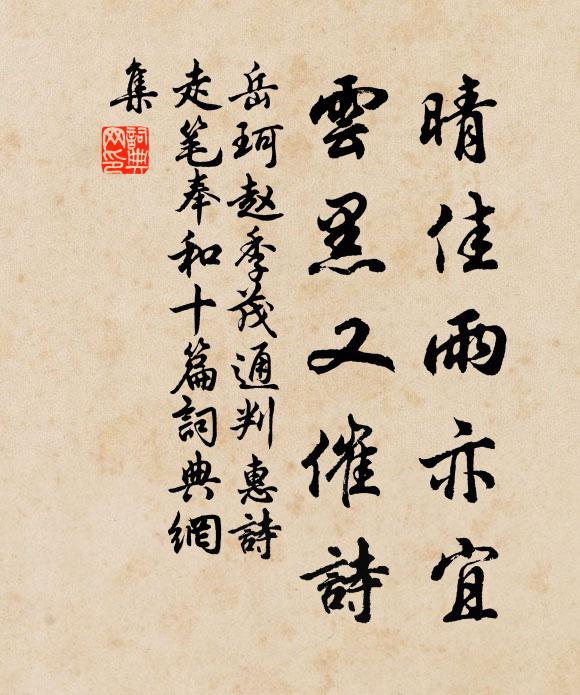 晴佳雨亦宜
雲黑又催詩
岳珂赵季茂通判惠詩
走笔奉和十篇詞典網
集
詞典
网印